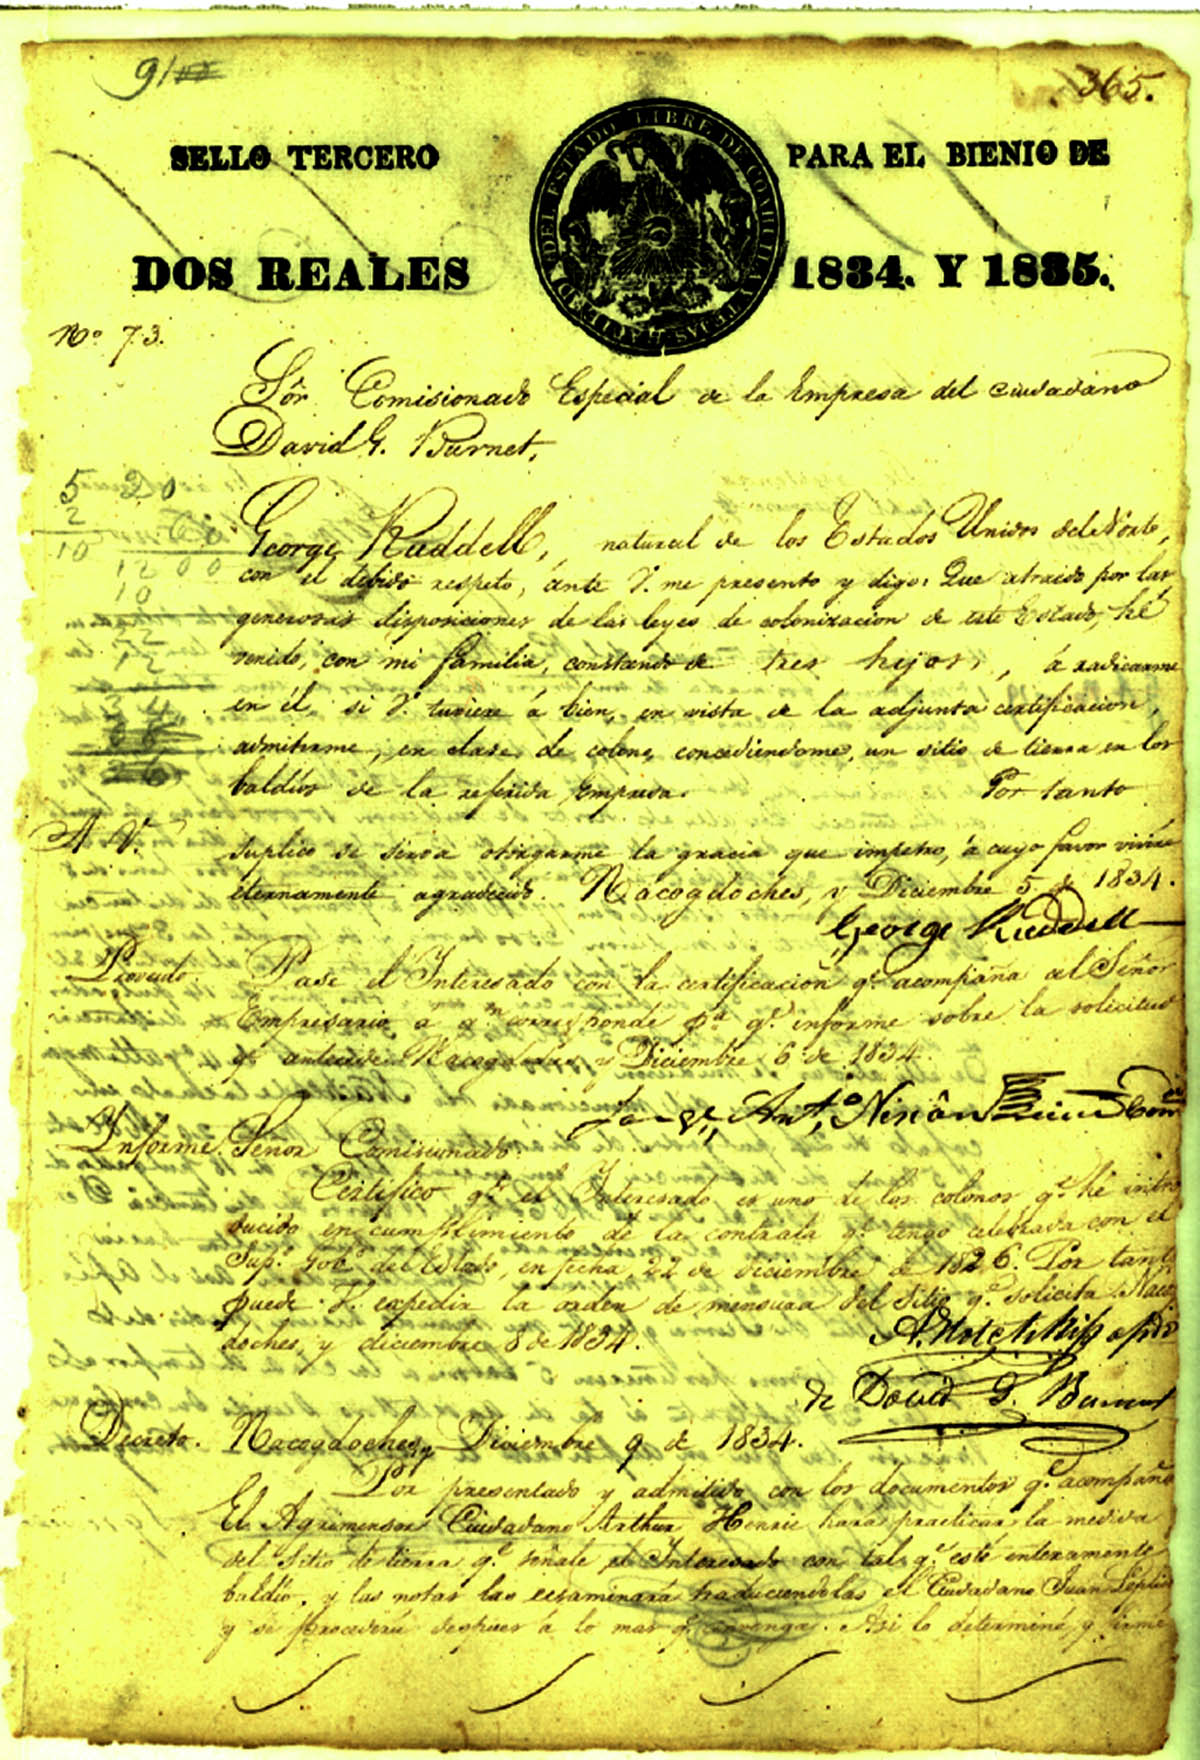 91
365.
SELLO TERCERO PARA EL BIENIO DE
DEL ESTADO LIBRE DE COAHUILA Y TEJAS HACIENDA
DOS REALES 1834. Y 1835.
No. 73.
Sōr Comisionado Especial de la Empresa del ciudadano
David G. Burnet.
5 20
2
10
1200
10
George Ruddell, natural de los Estados Unidos del Norte,
con el debido respeto, ánte V. me presento y digo: Que atraido por las
generosas disposiciones de las leyes de colonizacion de este Estado, hé
venido, con mi familia, constando de tres hijos, á radicarme
en él si V. tuviere á bien, en vista de la adjunta certificacion,
admitirme, en clase de colono, concediendome, un sitio de tierra en los
baldíos de la referida Empresa. Por tanto
A V. suplico se sirva otorgarme la gracia que impetro, á cuyo favor viviré
eternamente agradecido. Nacogdoches, y Diciembre 5 de 1834.
George Ruddell
Proveido. Pase el Interesado con la certificacion qe. acompaña al Señor
Empresario a qn. corresponde pa. qe. informe sobre la solicitud
qe. antecede Nacogdoches y Diciembre 6 de 1834.
Jorge Anto. Nixon Com
Informe. Señor Comisionado.
Certifico qe. el Interesado es uno de los colonos qe. hé intro
ducido en cumplimiento de la contrata qe. tengo celebrada con el
Supo. Gobo. del Estado, en fecha 22 de diciembre de 1826. Por tanto
puede V. expedir la órden de mensura del Sitio qe. solicita Nacog
doches, y diciembre 8 de 1834.
A. Hotchkiss apdo
de David G. Burnet
Decreto. Nacogdoches, Diciembre 9 de 1834.
Por presentado y admitido con los documentos qe. acompaña
El Agrimensor Ciudadano Arthur Henrie hara practicar la medida
del Sitio de tierra qe. señale el Interesado con tal qe. esté enteramente
baldío, y las notas las ecsaminará traduciendolas el Ciudadano Juan
y se procederá despues á lo mas qe. convenga. Asi lo determiné, y firmé